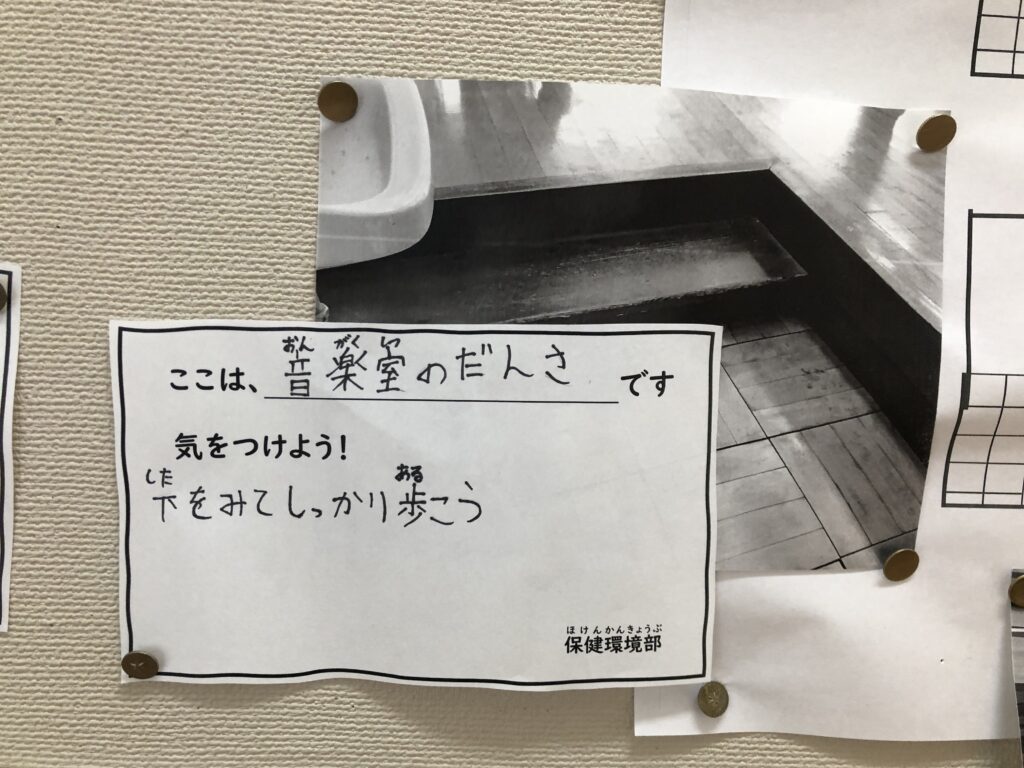 おん がく しつ
ここは、音楽室のだんさです
気をつけよう!
した ある
下をみてしっかり歩こう
ほけんかんきょうぶ
保健環境部